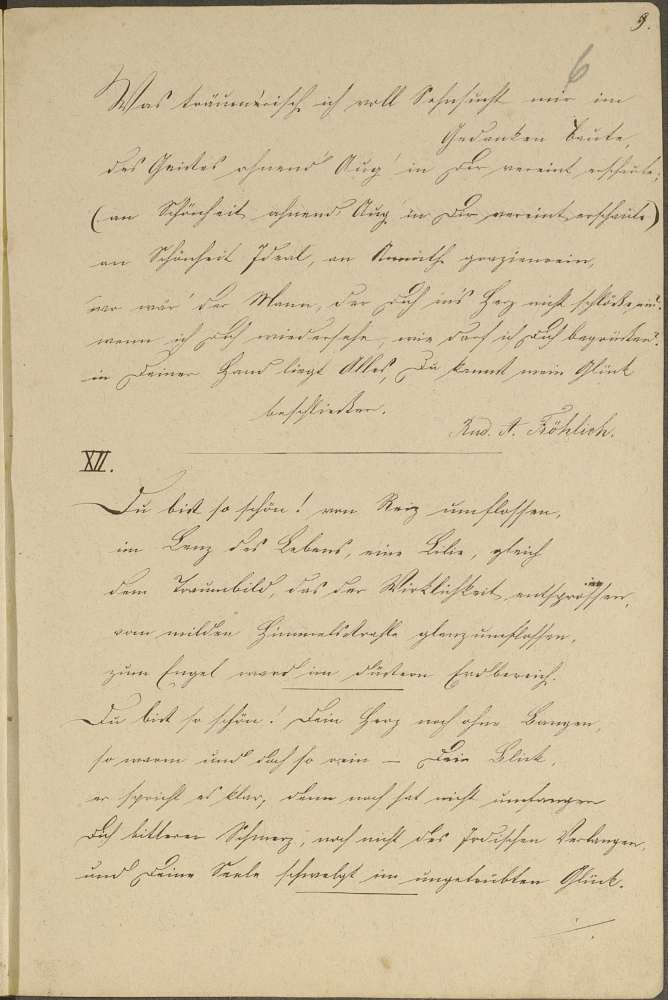 9.
6
Was träumerisch ich voll Sehnsucht mir im
Gedanken baute,
des Geistes ahnend' Aug' in Dir vereint erschaute;
(an Schönheit ahnend' Aug' in Dir vereint erschaute)
an Schönheit Ideal, an Anmuth grazienrein,
wo wär' der Mann, der Dich in's Herz nicht schlöße ein?
wenn ich Dich wiedersehe, wie darf ich Dich begrüßen?
in Deiner Hand liegt Alles, Du kannst mein Glück
beschließen.
Rud. A. Fröhlich.
XII.
Du bist so schön! von Reiz umflossen,
im Lenz des Lebens, eine Lilie, gleich
dem Traumbild, das der Wirklichkeit entsprossen,
vom milden Himmelsstrahle glanzumflossen,
zum Engel ward im düstern Erdbereich.
Du bist so schön! Dein Herz noch ohne Bangen,
so warm und doch so rein — Dein Blick,
er spricht es klar, denn noch hat nicht umfangen
Dich bitterer Schmerz, noch nicht des Irdischen Verlangen,
und Deine Seele schwelgt im ungetrübten Glück.